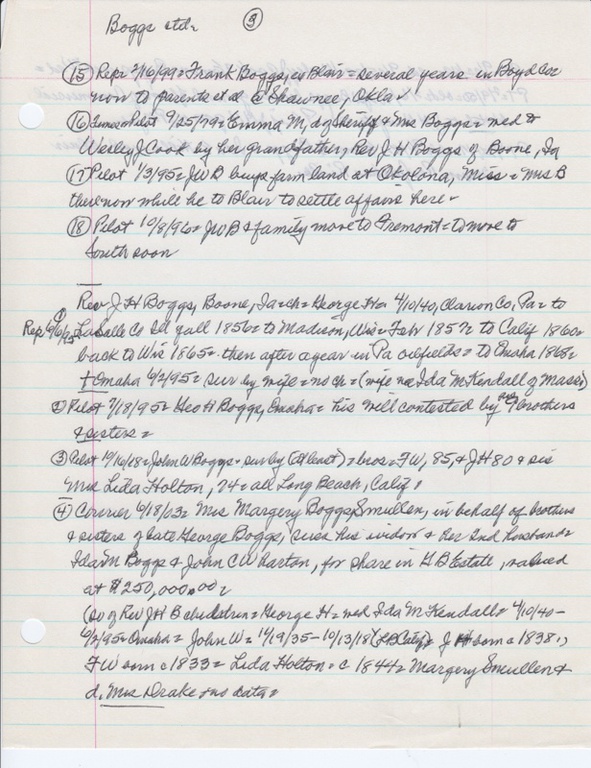 Boggs etal= ③
⑮ Rep= 2/16/99= Frank Boggs, ex Blair= several years in Boyd Co=
now to parents et al @ Shawnee, Okla=
⑯ Pilot 9/25/79= Emma M, d of Sheriff & Mrs Boggs= wed to
Wesley J Cook by her grandfather, Rev J H Boggs of Boone, Ia
⑰ Pilot 1/3/95= JWB buys farm land at Okolona, Miss= Mrs B
there now while he to Blair to settle affairs here=
⑱ Pilot 10/8/96= JWB & family move to Fremont= to move to
South soon
Rev J H Boggs, Boone, Ia=ch= George H= 4/10/40, Clarion Co, Pa= to
① Rep= 6/6/95= LaSalle Co Ill fall 1856= to Madison, Wis= Feb 1857= to Calif 1860=
back to Wis 1865= then after a year in Pa oilfields= to Omaha 1868=
† Omaha 6/2/95= sur by wife= no ch= (wife nee Ida M Kendall of Mass)
② Pilot 7/18/95= Geo H Boggs, Omaha= his will contested by brothers
& sisters=
③ Pilot 10/16/18= John W Boggs= sur by (at least)= bros= FW, 85, & JH 80 & sis
Mrs Lida Holton, 74= all Long Beach, Calif=
④ Courier 6/18/03= Mrs Margery Boggs Smullen, in behalf of brothers
& sisters of late George Boggs, sues his widow & her 2nd husband=
Ida M Boggs & John C Wharton, for share in GB Estate, valued
at $250,000.00=
(so of Rev J H B children= George H= wed Ida M Kendall= 4/10/40-
6/2/95= Omaha= John W= 11/19/35-10/13/18 (LB Calif)= J H born c 1838=,
F W born c 1833= Lida Holton= c 1844= Margery Smullen &
d, Mrs Drake= no data=